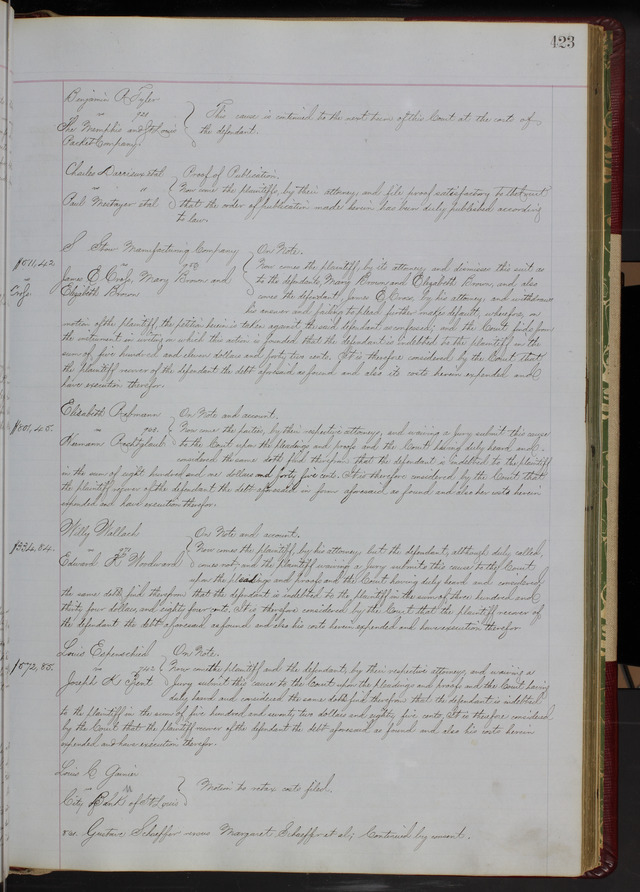 423
Benjamin R Tyler
vs 721
The Memphis and St Louis
Packet Company
This cause is continued to the next term of this Court at the costs of
the defendant.
Charles et al
vs
Paul Metayer et al
Proof of Publication.
Now come the plaintiffs, by their attorney, and file proof satisfactory to the Court
that the order of publication made herein has been duly published according
to law.
$511,42.
S Stow Manufacturing Company
vs
James C. Cross, Mary Brown and
Elizabeth Brown
On Note.
Now comes the plaintiff, by its attorney, and dismisses this suit as
to the defendants Mary Brown and Elizabeth Brown, and also
comes the defendant, James C. Cross, by his attorney, and withdraws
his answer and failing to plead further makes default; wherefore, on
motion of the plaintiff, the petition herein is taken against the said defendant as confessed; and the Court finds from
the instrument in writing on which this action is founded, that the defendant is indebted to the plaintiff in the
sum of five hundred and eleven dollars and forty two cents. It is therefore considered by the Court, that
the plaintiff recover of the defendant the debt aforesaid as found and also its costs herein expended and
have execution therefor.
$801,45.
Elizabeth
vs
Hermann
On Note and account.
Now come the parties, by their respective attorneys, and waiving a jury submit this cause
to the Court upon the pleadings and proofs and the Court having duly heard and
considered the same doth find therefrom that the defendant is indebted to the plaintiff
in the sum of eight hundred and one dollars and forty five cents. It is therefore considered by the Court that
the plaintiff recover of the defendant the debt aforesaid in form aforesaid as found and also her costs herein
expended and have execution therefor.
$334,84.
Willy Wallach
vs
Edward Woodward
On Note and account.
Now comes the plaintiff, by his attorney, but the defendant, although duly called,
comes not; and the plaintiff waiving a jury submits this cause to the Court
upon the pleadings and proofs and the Court having duly heard and considered
the same doth find therefrom that the defendant is indebted to the plaintiff in the sum of three hundred and
thirty four dollars, and eighty four cents. It is therefore considered by the Court that the plaintiff recover of
the defendant the debt aforesaid as found and also his costs herein expended and have execution therefor
$572,85.
Louis Espenschied
vs 742
Joseph R
On Note.
Now come the plaintiff and the defendant, by their respective attorneys, and waiving a
jury submit this cause to the Court upon the pleadings and proofs and the Court having
duly heard and considered the same doth find therefrom that the defendant is indebted
to the plaintiff in the sum of five hundred and seventy two dollars and eighty five cents. It is therefore considered
by the Court that the plaintiff recover of the defendant the debt aforesaid as found and also his costs herein
expended and have execution therefor.
Louis C Garnier
vs
City Bank of St Louis
Motion to retax costs filed.
Gustave Schaeffer versus Margaret Schaeffer et al; Continued by consent.